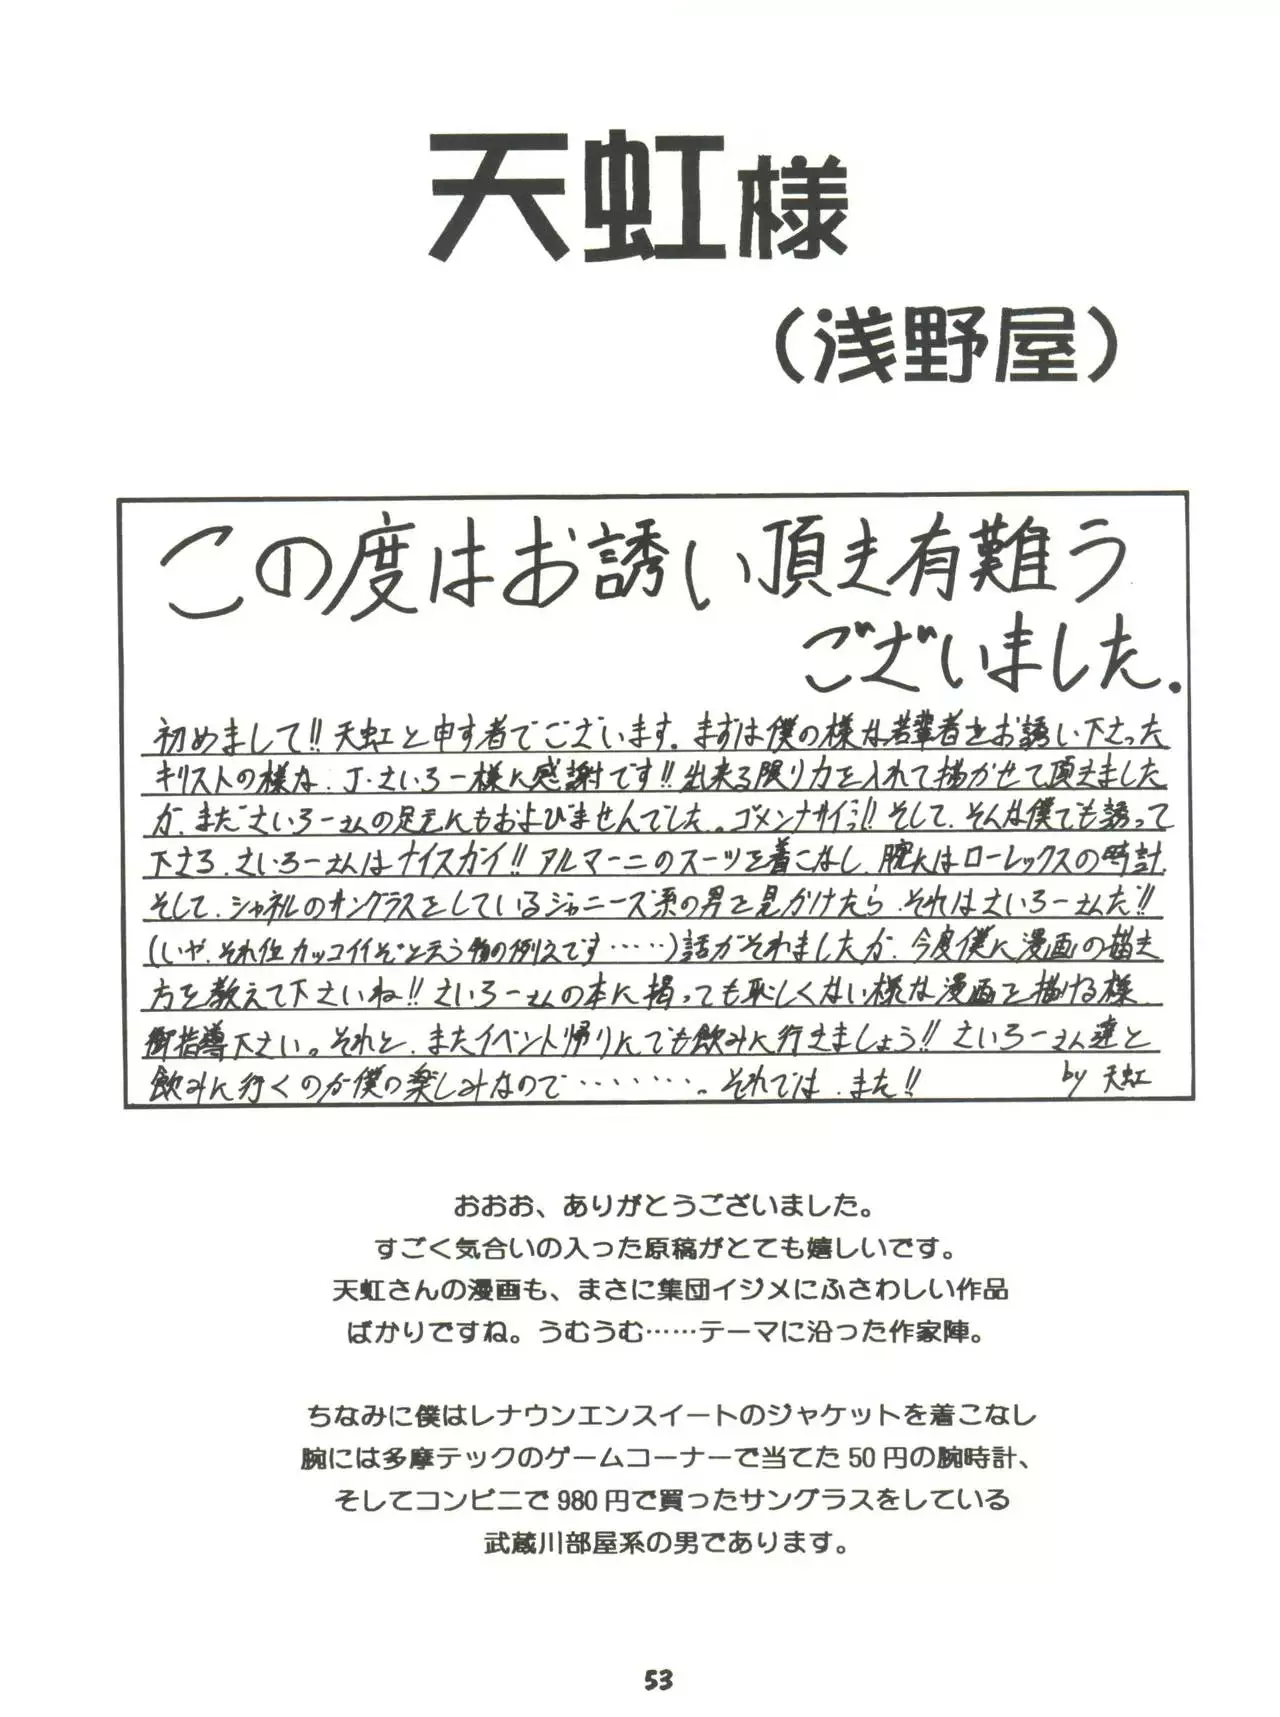 天虹様
（浅野屋）
この度はお誘い頂き有難う
ございました.
初めまして!!天虹と申す者でございます。まずは僕の様な若輩者をお誘い下さった
キリストの様な、J・さいろー様に感謝です!!出来る限り力を入れて描かせて頂きました
が、まださいろーさんの足元にもおよびませんでした。ゴメンナサイっ!!そして、そんな僕でも誘って
下さる、さいろーさんはナイスガイ!!アルマーニのスーツを着こなし、腕にはローレックスの時計、
そして、シャネルのサングラスをしているジャニーズ系の男を見かけたら、それはさいろーさんだ!!
(いや、それ位カッコイイぞと云う物の例えです……)話がそれましたが、今度僕に漫画の描き
方を教えて下さいね!!さいろーさんの本に揭っても恥しくない様な漫画を描ける様、
御指導下さい。それと、またイベント帰りにでも飲みに行きましょう!!さいろーさん達と
飲みに行くのが僕の楽しみなので………。それでは、また!!
by 天虹
おおお、ありがとうございました。
すごく気合いの入った原稿がとても嬉しいです。
天虹さんの漫画も、まさに集団イジメにふさわしい作品
ばかりですね。うむうむ……テーマに沿った作家陣。
ちなみに僕はレナウンエンスイートのジャケットを着こなし
腕には多摩テックのゲームコーナーで当てた50円の腕時計、
そしてコンビニで980円で買ったサングラスをしている
武蔵川部屋系の男であります。
53